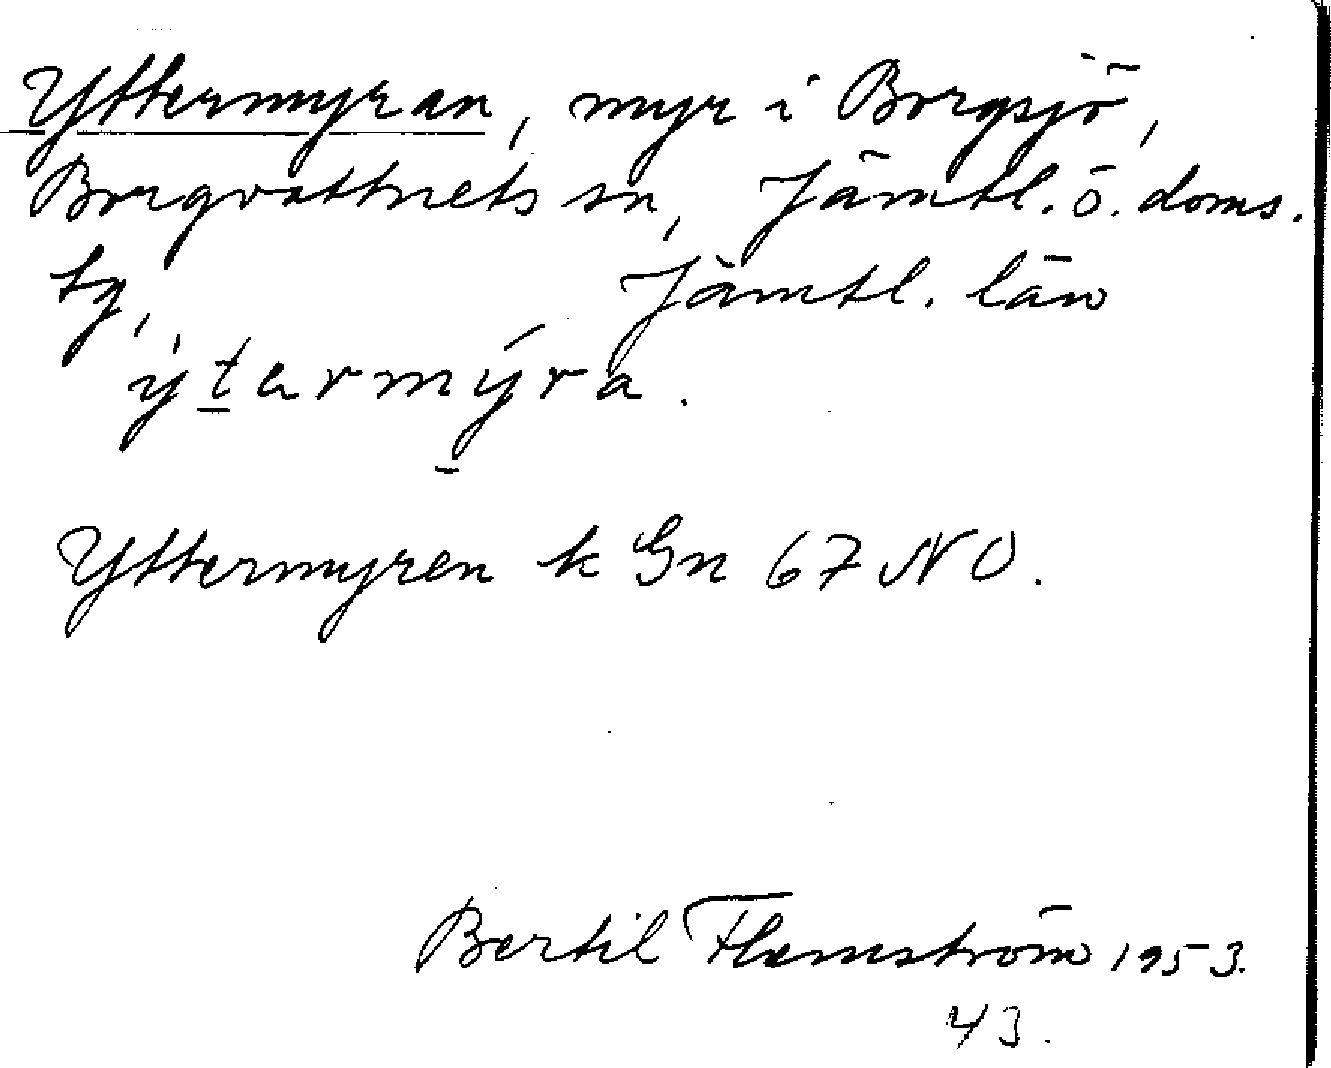 Yttermyran, myr i Borgsjö,
Borgvattnets sn, Jämtl. ö. doms.
tg, Jämtl. län
ỳtermýra.
Yttermyren k Gn 67 NO.
Bertil Flemström 1953.
43.